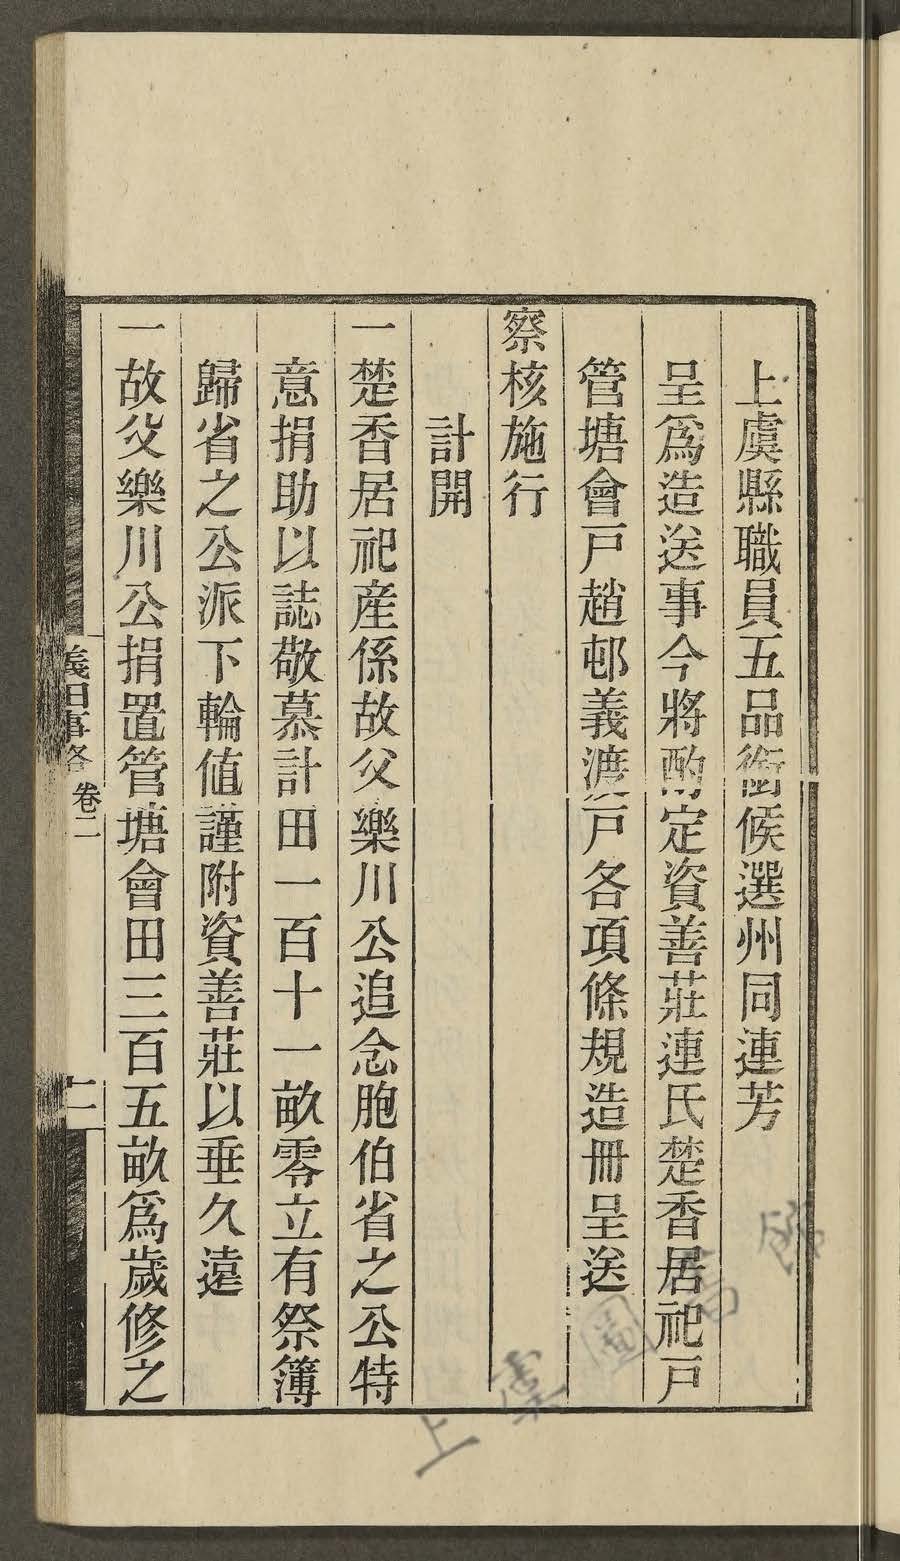 上虞縣職員五品銜候選州同連芳
呈爲造送事今將酌定資善莊連氏楚香居祀戸
管塘會戸趙邨義渡戸各項條規造冊呈送
察核施行
計開
一楚香居祀産係故父樂川公追念胞伯省之公特
意捐助以誌敬慕計田一百十一畝零立有祭簿
歸省之公派下輪値謹附資善莊以垂久遠
一故父樂川公捐置管塘會田三百五畝爲歲修之
義田事略 卷二
二
上虞圖書館